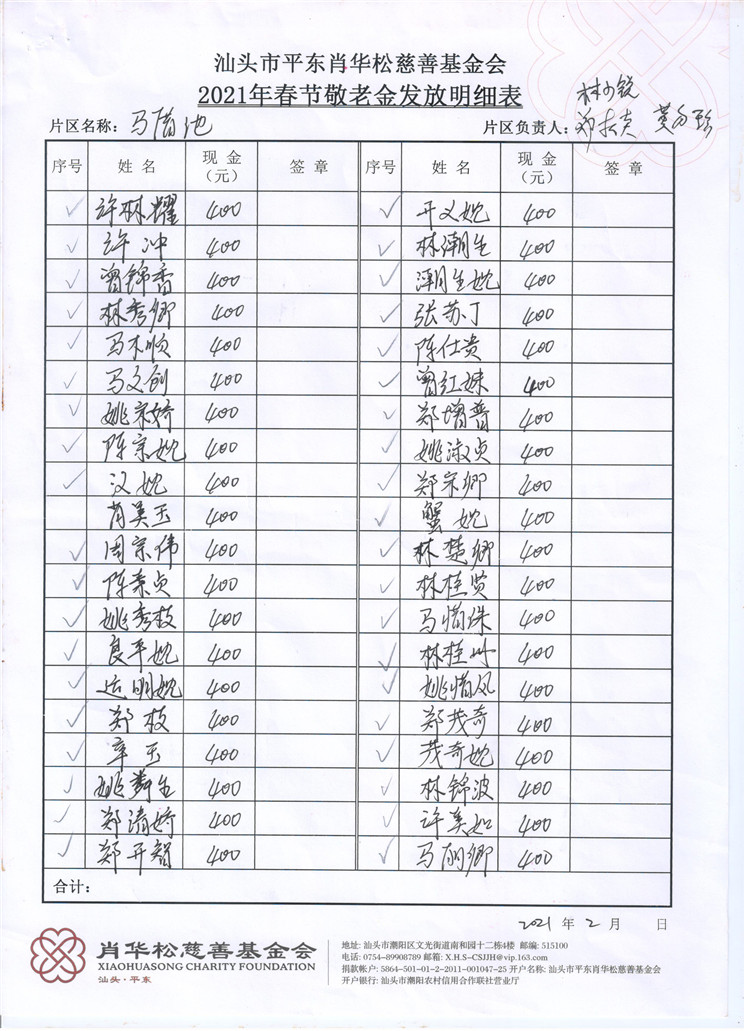 汕头市平东肖华松慈善基金会
2021年春节敬老金发放明细表
林少锐
片区名称：马惜池 片区负责人：郑松炎 黄
序号 姓名 现金（元） 签章 序号 姓名 现金（元） 签章
✓ 许林耀 400 ✓ 开义婉 400
✓ 许冲 400 ✓ 林潮生 400
✓ 曾锦香 400 ✓ 潮生婉 400
✓ 林秀卿 400 ✓ 张苏丁 400
✓ 马木顺 400 ✓ 陈仕贵 400
✓ 马文创 400 ✓ 曾红妹 400
✓ 姚宗娇 400 ✓ 郑增普 400
✓ 陈宗婉 400 ✓ 姚淑贞 400
✓ 汉婉 400 ✓ 郑宗卿 400
肖美玉 400 ✓ 蟹婉 400
✓ 周宗伟 400 ✓ 林楚卿 400
✓ 陈素贞 400 ✓ 林桂贤 400
✓ 姚秀枝 400 ✓ 马惜珠 400
✓ 良平婉 400 ✓ 林桂叶 400
✓ 运明婉 400 ✓ 姚惜凤 400
✓ 郑枝 400 ✓ 郑茂奇 400
✓ 章玉 400 ✓ 茂奇婉 400
✓ 姚舜生 400 ✓ 林锦波 400
✓ 郑清娇 400 ✓ 许美如 400
✓ 郑开智 400 ✓ 马丽卿 400
合计：
2021 年 2 月 日
肖华松慈善基金会
XIAOHUASONG CHARITY FOUNDATION
汕头·平东
地址: 汕头市潮阳区文光街道南和园十二栋4楼 邮编: 515100
电话: 0754-89908789 邮箱: X.H.S-CSJJH@vip.163.com
捐款帐户: 5864-501-01-2-2011-001047-25 开户名称: 汕头市平东肖华松慈善基金会
开户银行: 汕头市潮阳农村信用合作联社营业厅